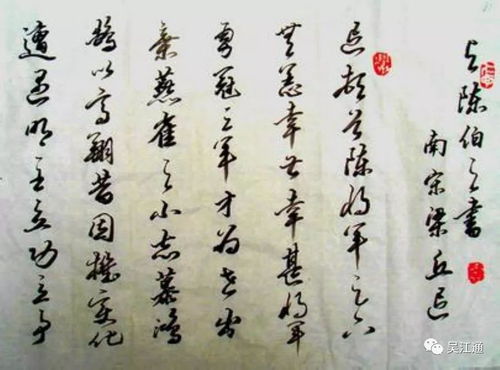 与陈伯之书
南宋梁丘迟
迟顿首陈将军足下
无恙幸甚幸甚将军
勇冠三军才为世出
棄燕雀之小志慕鸿
鹄以高翔昔因机变化
遭遇明主立功立事
吴江通